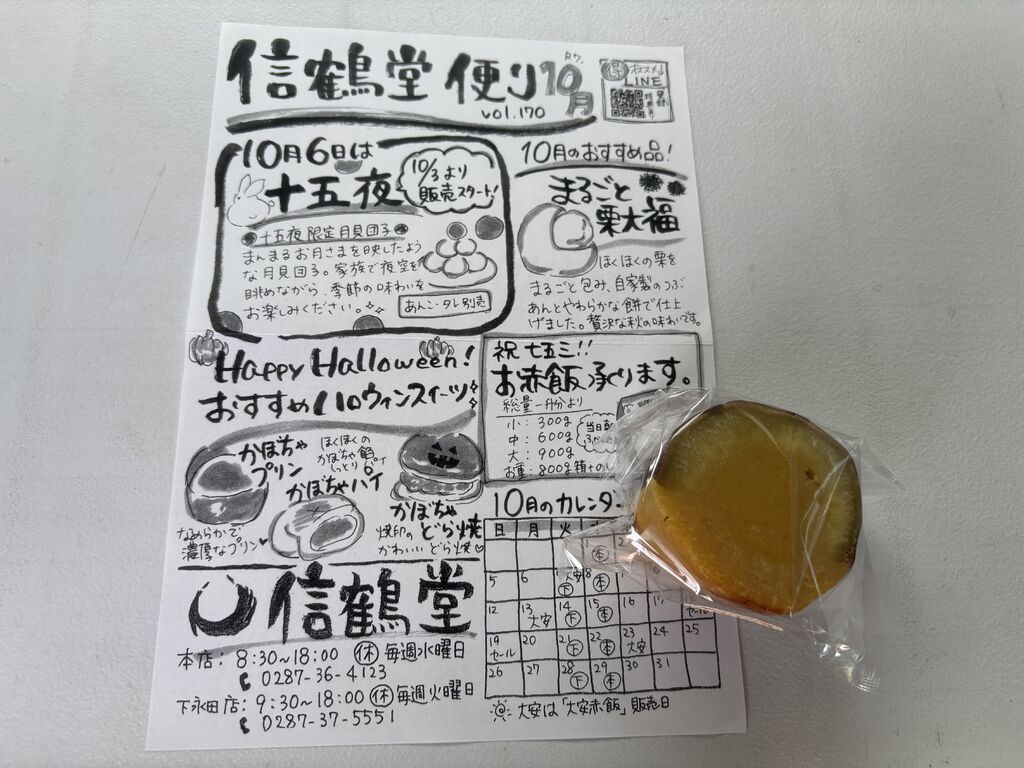 信鶴堂 便り R7. 10月
vol.170
得 オススメ!
LINE
10月6日は
十五夜
10/3より
販売スタート!
十五夜限定月見団子
まんまるお月さまを映したよう
な月見団子。家族で夜空を
眺めながら、季節の味わいを
お楽しみください。
あんこ・タレ別売
10月のおすすめ品!
まるごと
栗大福
ほくほくの栗を
まるごと包み、自家製のつぶ
あんとやわらかな餅で仕上
げました。贅沢な秋の味わいです。
Happy Halloween!
おすすめハロウィンスイーツ
かぼちゃ
プリン
なめらかで
濃厚なプリン
ほくほくの
かぼちゃ餡
しっとりパイ
かぼちゃパイ
かぼちゃ
どら焼
焼印の
かわいいどら焼
祝 七五三!!
お赤飯承ります。
総量一升分より
小:300g
中:600g
大:900g
お重:800g箱+のし
10月のカレンダー
日 月 火
休
5 6 大安 下 8 休
12 13 大安 14 下 15 休 16 セール
19 セール 20 21 下 22 休 23 大安 24 25
26 27 28 下 29 休 30 31
大安は「大安赤飯」販売日
信鶴堂
本店: 8:30~18:00 休 毎週水曜日
0287-36-4123
下永田店: 9:30~18:00 休 毎週火曜日
0287-37-5551